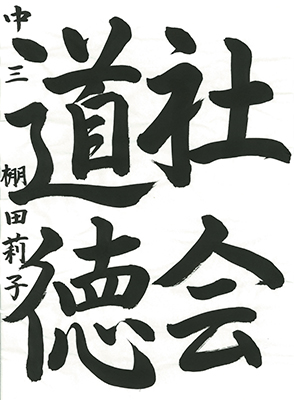 社会
道徳
中三 棚田莉子